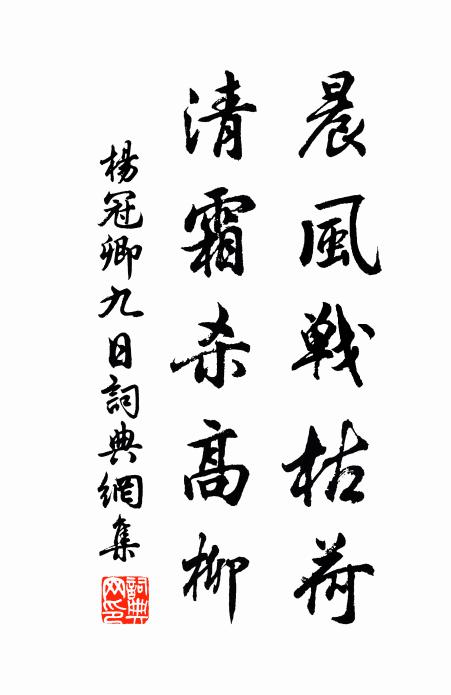 晨風戰枯荷
清霜杀高柳
楊冠卿九日詞典網集
詞典
网印